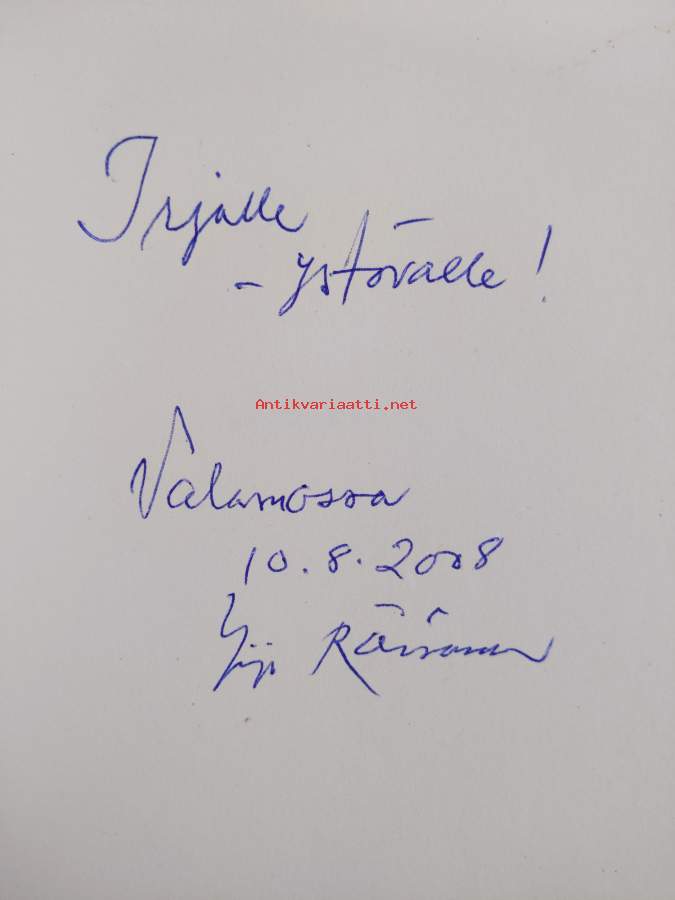 Irjalle
- ystävälle!
Antikvariaatti.net
Valamossa
10.8.2008
Räisänen